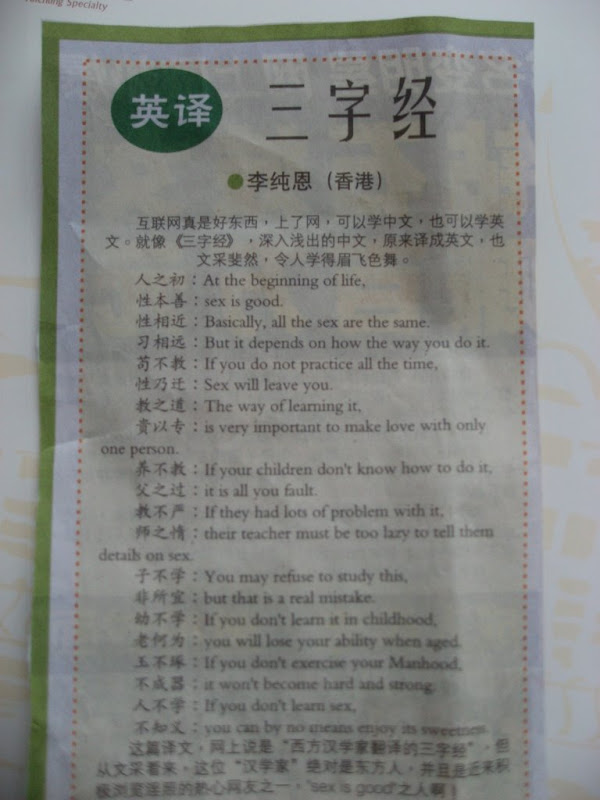 Teaching Specialty
英译 三字经
●李纯恩（香港）
互联网真是好东西，上了网，可以学中文，也可以学英
文。就像《三字经》，深入浅出的中文，原来译成英文，也
文采斐然，令人学得眉飞色舞。
人之初：At the beginning of life,
性本善：sex is good.
性相近：Basically, all the sex are the same.
习相远：But it depends on how the way you do it.
苟不教：If you do not practice all the time,
性乃迁：Sex will leave you.
教之道：The way of learning it,
贵以专：is very important to make love with only
one person.
养不教：If your children don't know how to do it,
父之过：it is all you fault.
教不严：If they had lots of problem with it,
师之惰：their teacher must be too lazy to tell them
details on sex.
子不学：You may refuse to study this,
非所宜：but that is a real mistake.
幼不学：If you don't learn it in childhood,
老何为：you will lose your ability when aged.
玉不琢：If you don't exercise your Manhood,
不成器：it won't become hard and strong.
人不学：If you don't learn sex,
不知义：you can by no means enjoy its sweetness.
这篇译文，网上说是“西方汉学家翻译的三字经”，但
从文采看来，这位“汉学家”绝对是东方人，并且是近来积
极浏览淫照的热心网友之一，"sex is good"之人啊！